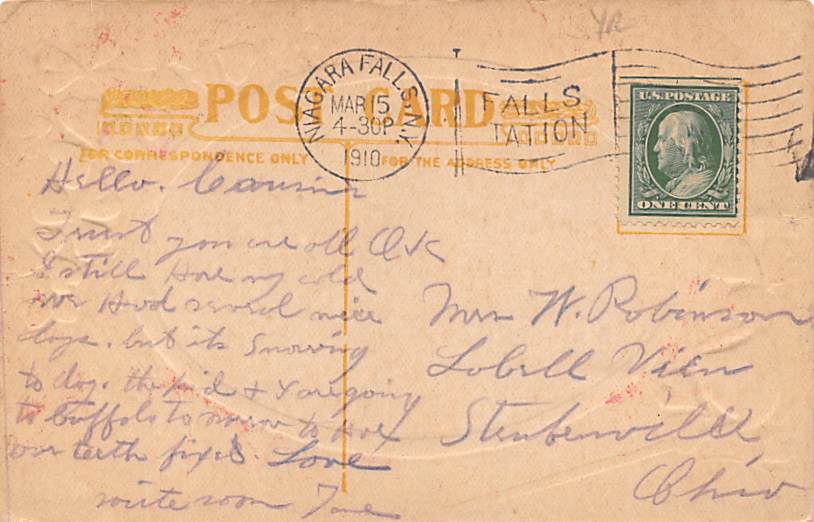 POST CARD
NIAGARA FALLS, N.Y.
MAR 15
4-30P
1910
FALLS
TATION
U.S. POSTAGE
ONE CENT
FOR CORRESPONDENCE ONLY
FOR THE ADDRESS ONLY
Hello. Cousins
Trust you are all OK
I still Have my cold
we Had several nice
days. but its Snowing
to day. the kid & I are going
to buffalo to morrow to Have
our teeth fixed. Love
write soon
Mrs W. Robinson
Lobell View
Steubenville
Ohio